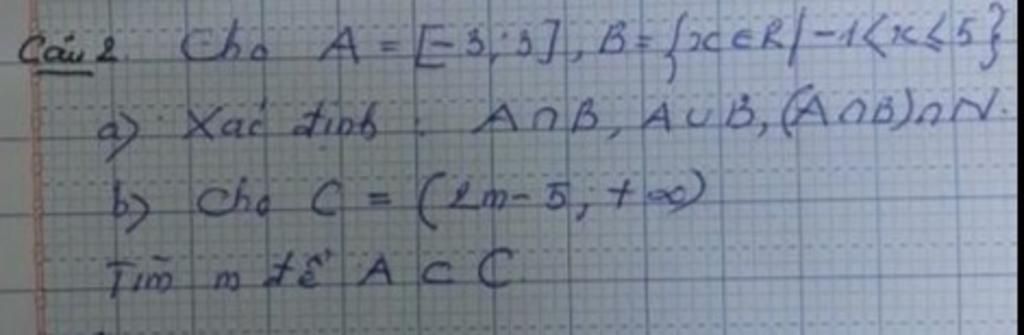 Câu 2. Cho A = [-3; 3], B = {x ∈ R | -1 < x ≤ 5}
a) Xác định : A ∩ B, A ∪ B, (A ∩ B) ∩ N.
b) Cho C = (2m - 5; +∞)
Tìm m để A ⊂ C